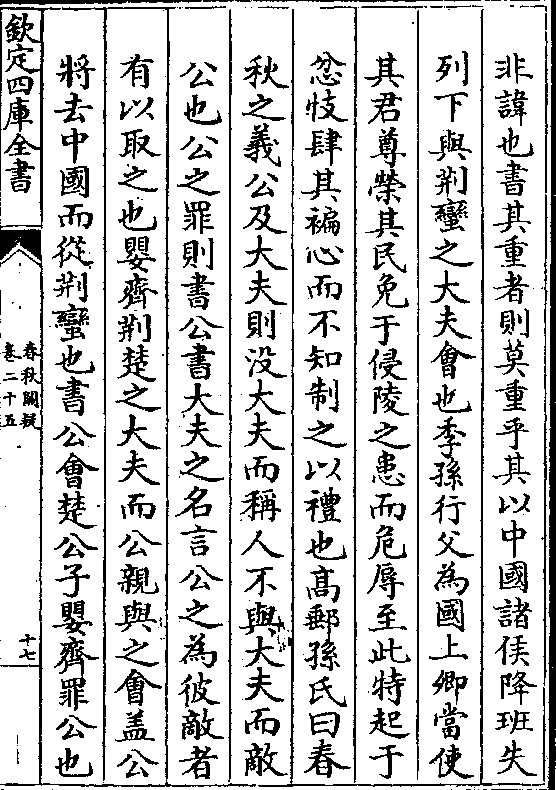 非諱也書其重者則莫重乎其以中國諸侯降班失
列下與荆蠻之大夫會也季孫行父為國上卿當使
其君尊榮其民免于侵陵之患而危辱至此特起于
忿忮肆其褊心而不知制之以禮也髙郵孫氏曰春
秋之義公及大夫則没大夫而稱人不與大夫而敵
公也公之罪則書公書大夫之名言公之為彼敵者
有以取之也嬰齊荆楚之大夫而公親與之會盖公
將去中國而從荆蠻也書公會楚公子嬰齊罪公也
欽定四庫全書
春秋闕疑
卷二十五
十七